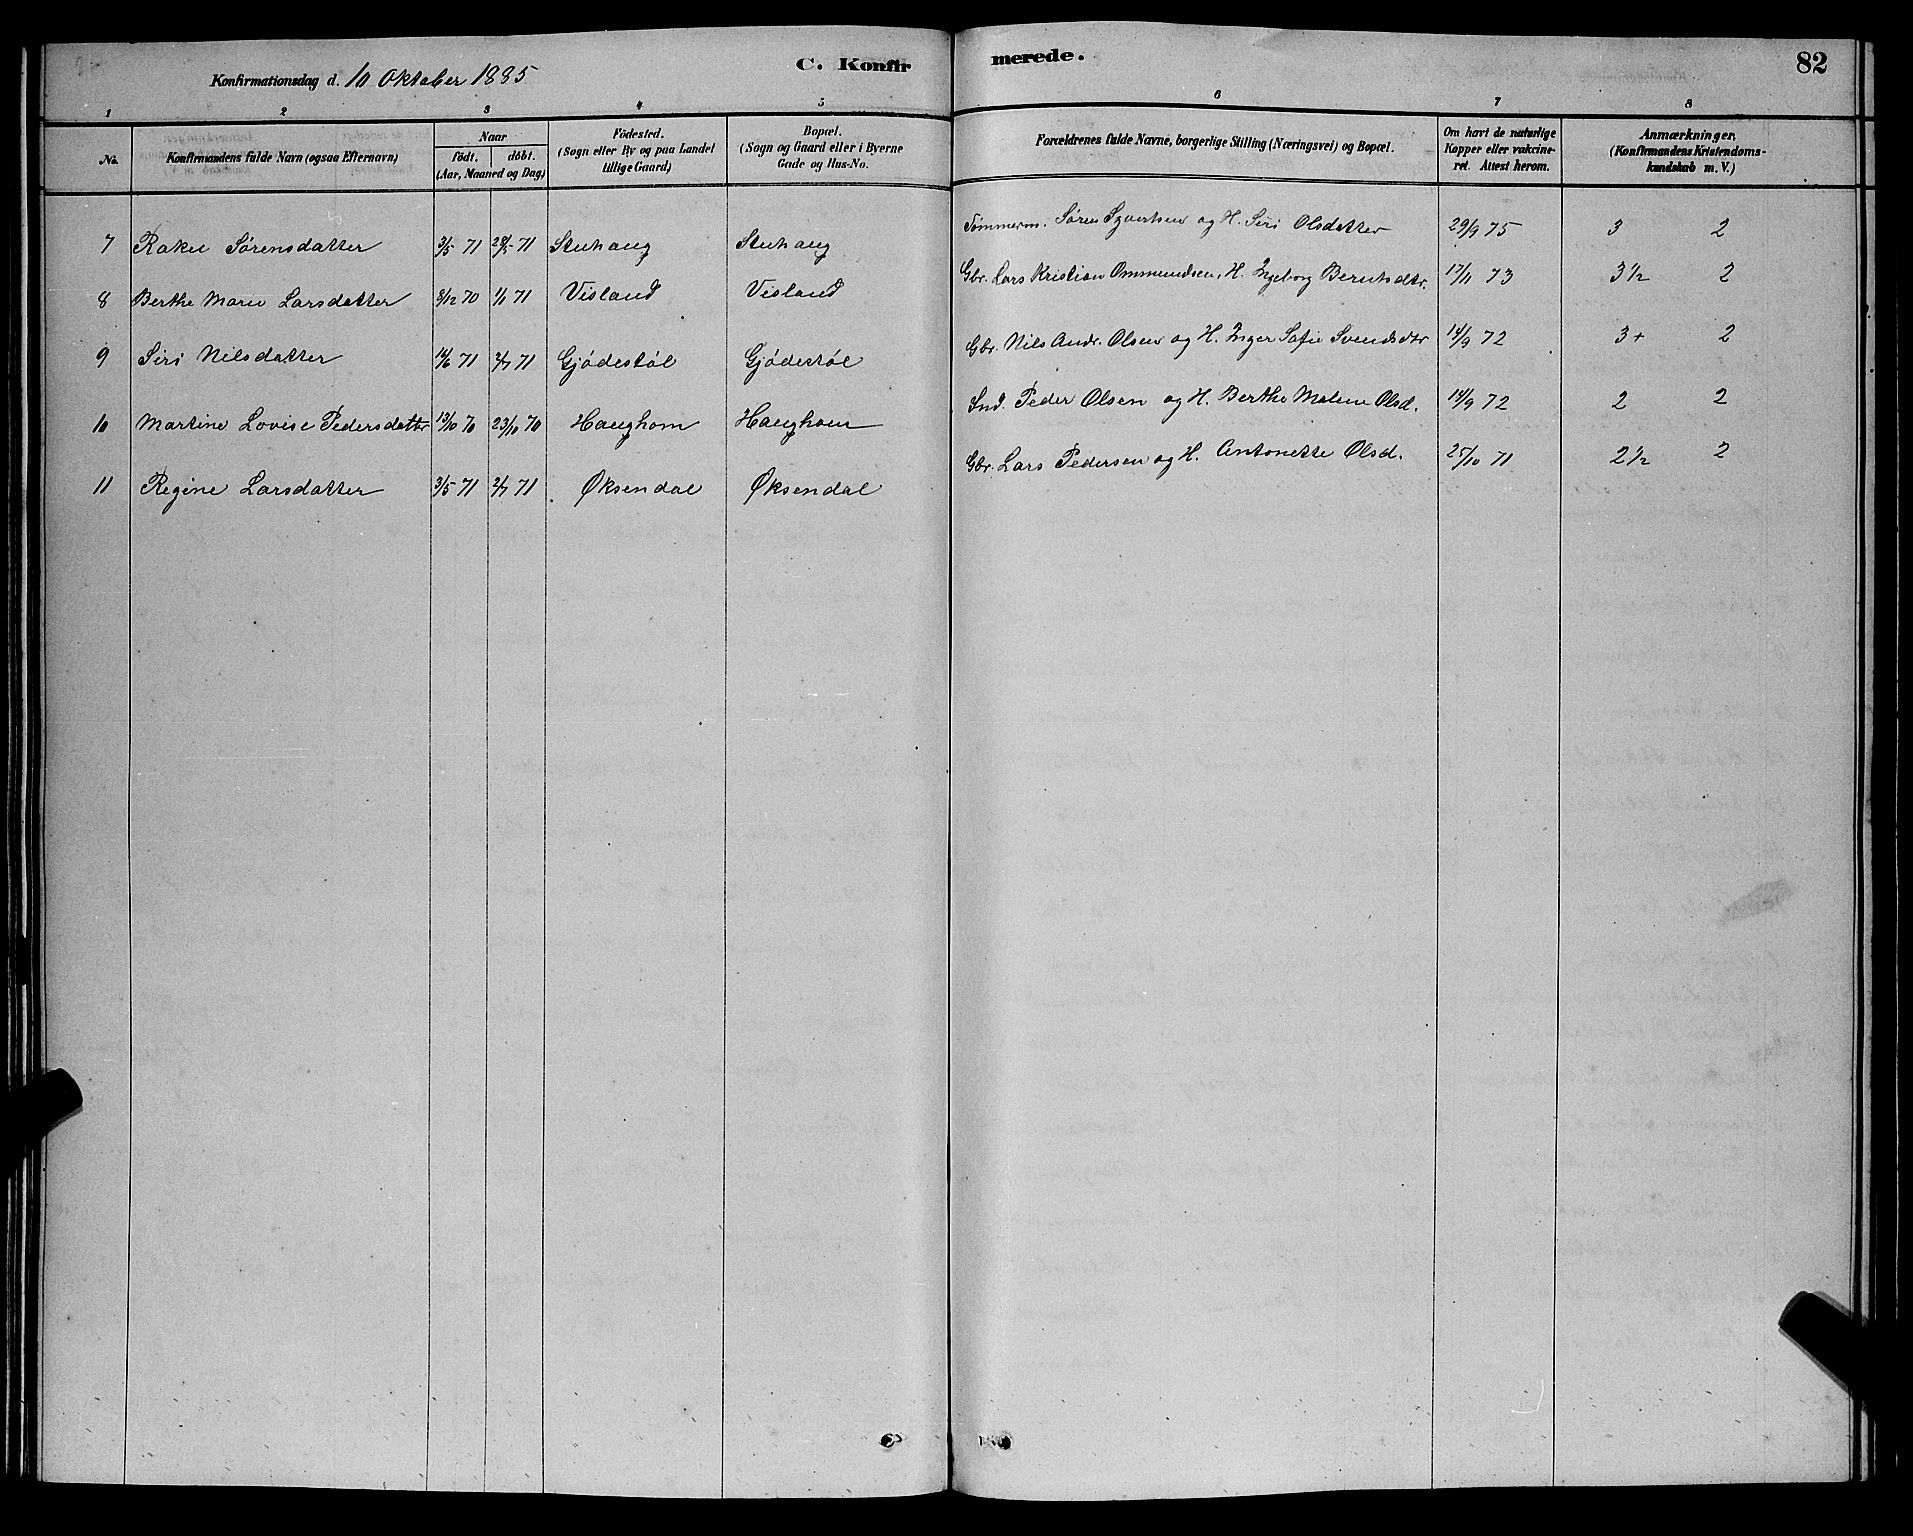 Konfirmationsdag d. 10 Oktober 1885 C. Konfirmerede. 82
1 2 3 4 5 6 7 8
No. Konfirmandens fulde Navn (ogsaa Efternavn) Naar födt. döbt. (Aar, Maaned og Dag) Födested. (Sogn eller By og paa Landet tillige Gaard) Bopæl. (Sogn og Gaard eller i Byerne Gade og Hus-No. Forældrenes fulde Navne, borgerlige Stilling (Næringsvei) og Bopæl. Om havt de naturlige Kopper eller vakcineret. Attest herom. Anmærkninger. (Konfirmandens Kristendomskundskab m. V.)
7 Rakel Sørensdatter 3/5 71 28/5 71 Stuhaug Stuhaug Tømmerm. Søren Syvertsen og H. Siri Olsdatter 29/9 75 3 2
8 Berthe Marie Larsdatter 8/12 70 1/1 71 Visland Visland Gbr. Lars Kristian Ommundsen, H. Ingeborg Berntsdtr. 17/11 73 3 1/2 2
9 Siri Nilsdatter 71 2/7 71 Gjødestøl Gjødestøl Gbr. Nils Andr. Olsen og H. Inger Sofie Svendsdtr 14/9 72 3+ 2
10 Martine Lovise Pedersdattr 13/10 70 23/10 70 Haughom Haughom Ind. Peder Olsen og H. Berthe Malene Olsd. 14/9 72 2 2
11 Regine Larsdatter 3/5 71 2/7 71 Øksendal Øksendal Gbr. Lars Pedersen og H. Antonette Olsd. 25/10 71 2 1/2 2